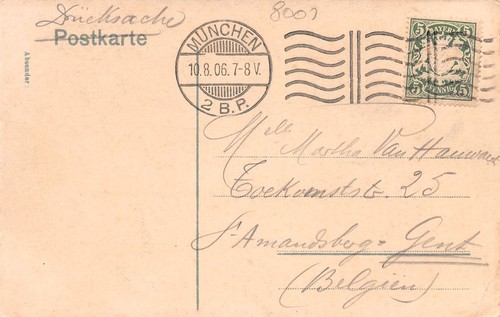 Drucksache
8001
Postkarte
Absender
MÜNCHEN
10.8.06.7-8V.
2 B.P.
5 5
BAYERN
PFENNIG
5 5
Mlle Martha Van
Toekomststr. 25
St Amandsberg = Gent
(Belgien)